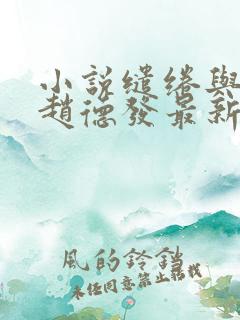 小說繾綣與
趙德發最新
風的鈴鐺
未經同意禁止轉載